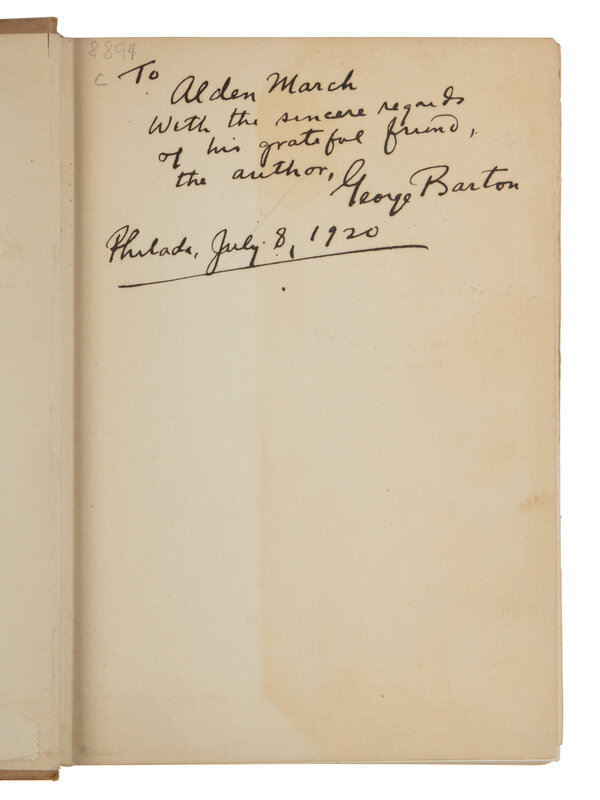 8894
C
To
Alden March
With the sincere regards
of his grateful friend,
the author,
George Barton
Philada, July 8, 1920